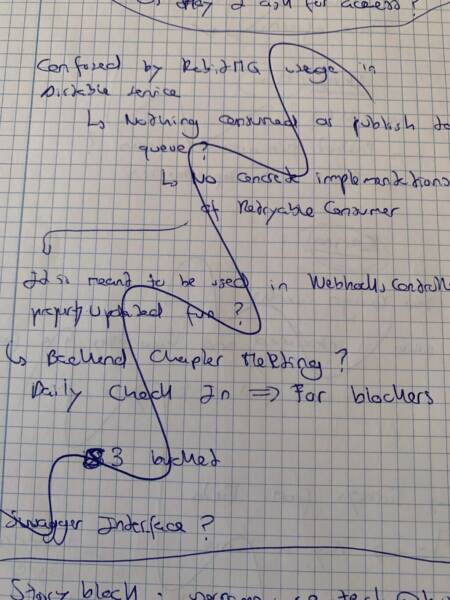 may I ask for access?
Confused by RabitMQ usage in
Disckable service
↳ Nothing consumed or publish to
queue?
↳ No concrete implementations
of Retryable Consumer
It is meant to be used in Webhooks Contro
property updated fire?
↳ Backend Chapter Meeting?
Daily Check In => For blockers
S3 bucket
Swagger Interface?
Story block